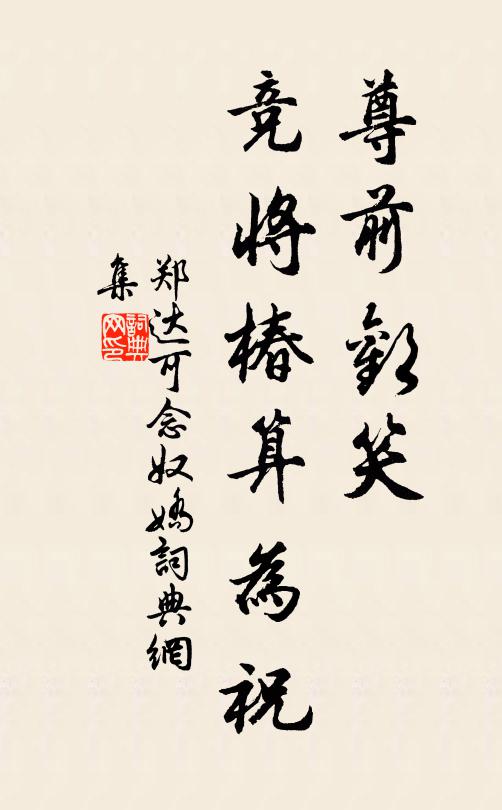 尊前歡笑
竞將椿算為祝
郑达可念奴嬌詞典網
集
詞典
网印